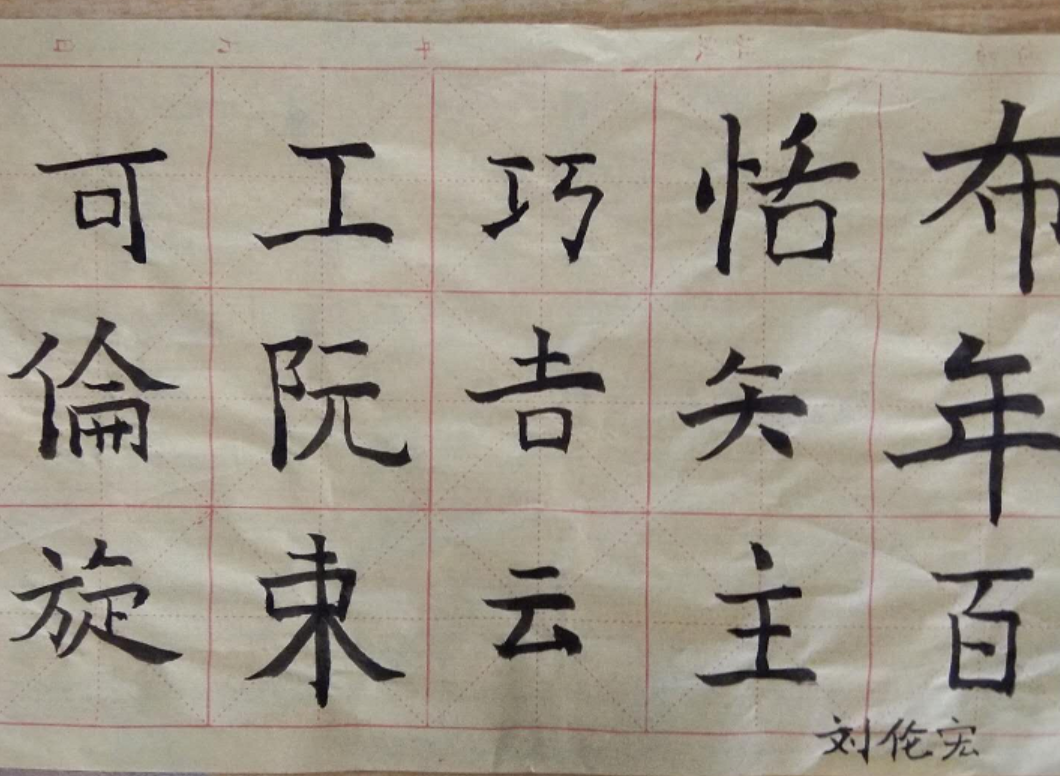 可工巧恬布
倫阮吉矢年
旋束云主百
刘伦宏